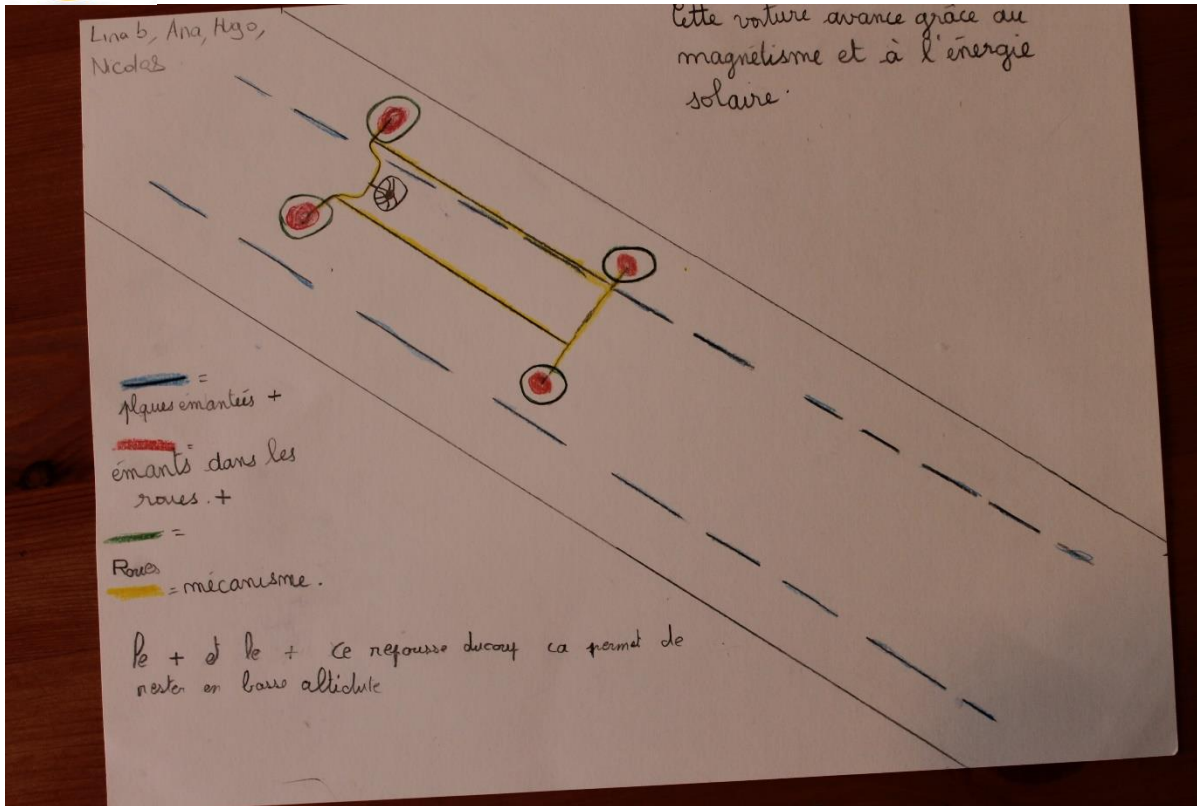 Lina b, Ana, Hugo,
Nicolas
Cette voiture avance grâce au
magnétisme et à l'énergie
solaire.
=
plques emantées +
=
émants dans les
roues. +
=
Roues
= mécanisme.
le + et le + ce repousse ducoup ca permet de
rester en basse altidute